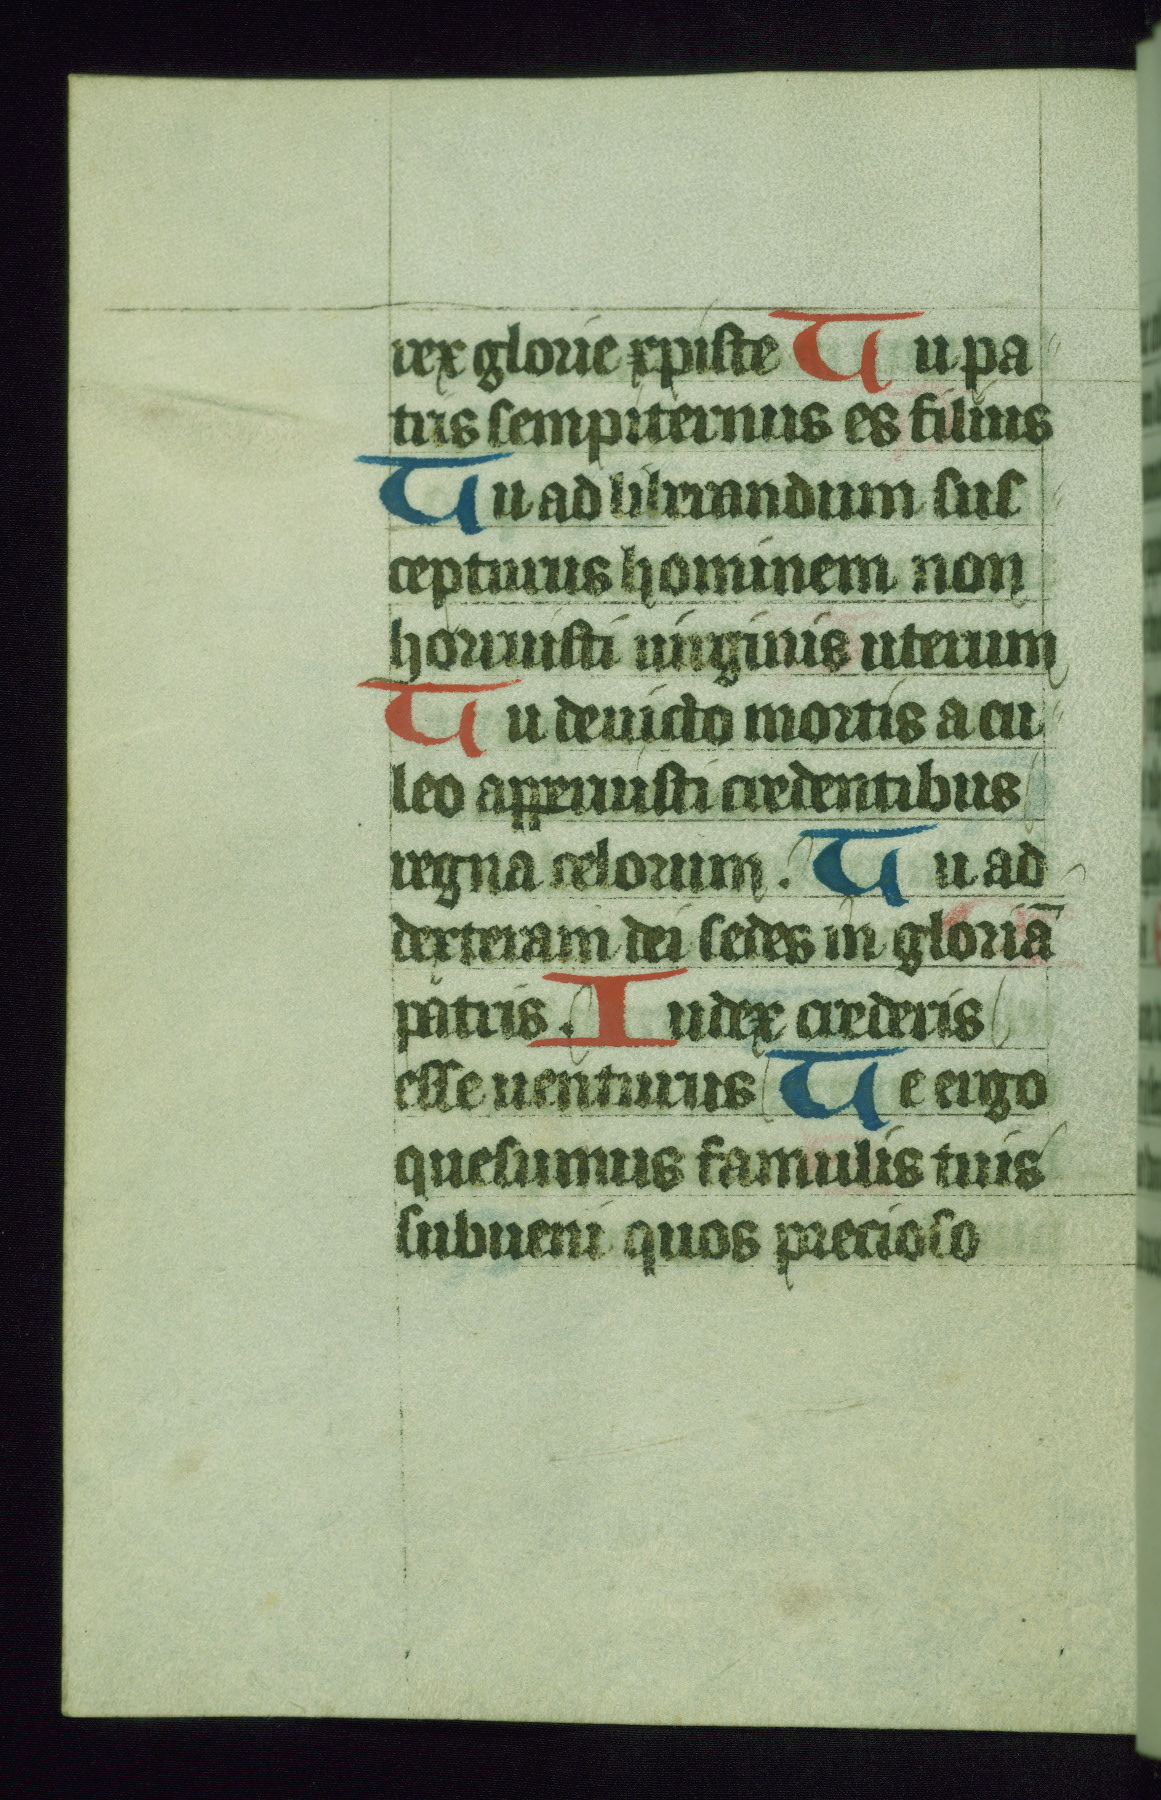 rex glorie xpiste Tu pa
tris sempiternus es filius
Tu ad liberandum sus
cepturus hominem non
horruisti uirginis uterum
Tu deuicto mortis acu
leo apperuisti credentibus
regna celorum. Tu ad
dexteram dei sedes in gloriā
patris. Iudex crederis
esse uenturus Te ergo
quesumus famulis tuis
subueni quos precioso